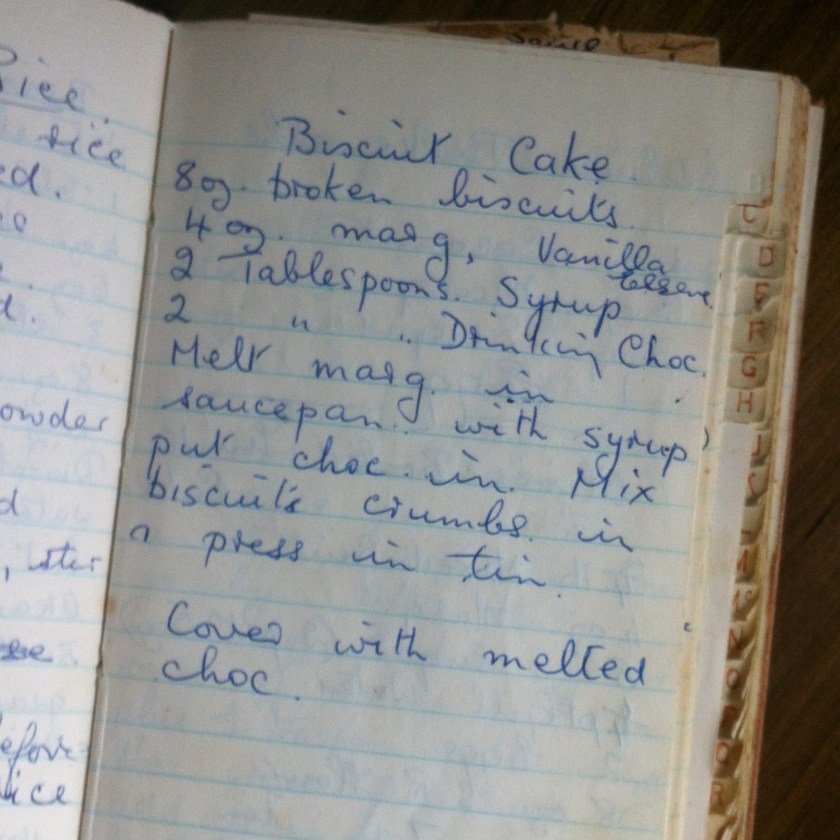 Sauce
Rice.
rice
ed.
d.
owder
d
efore
rice
Biscuit Cake.
8oz. broken biscuits.
4 oz. marg, Vanilla
essence.
2 Tablespoons. Syrup
2 " " Drinking Choc.
Melt marg. in
saucepan. with syrup
put choc. in. Mix
biscuits crumbs. in
press in tin.
Cover with melted
choc.
C
D
F
G
H
J
M
N
O
P
Q
R